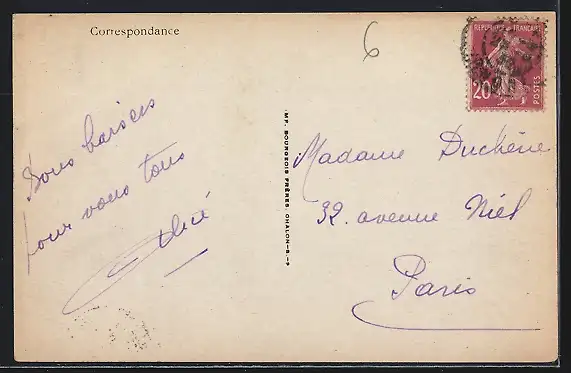 Correspondance
6
RÉPUBLIQUE FRANÇAISE
20
POSTES
Bons baisers
pour vous tous
IMP. BOURGEOIS FRÈRES CHALON-S.-S
Madame Duchêne
32. avenue Niel
Paris